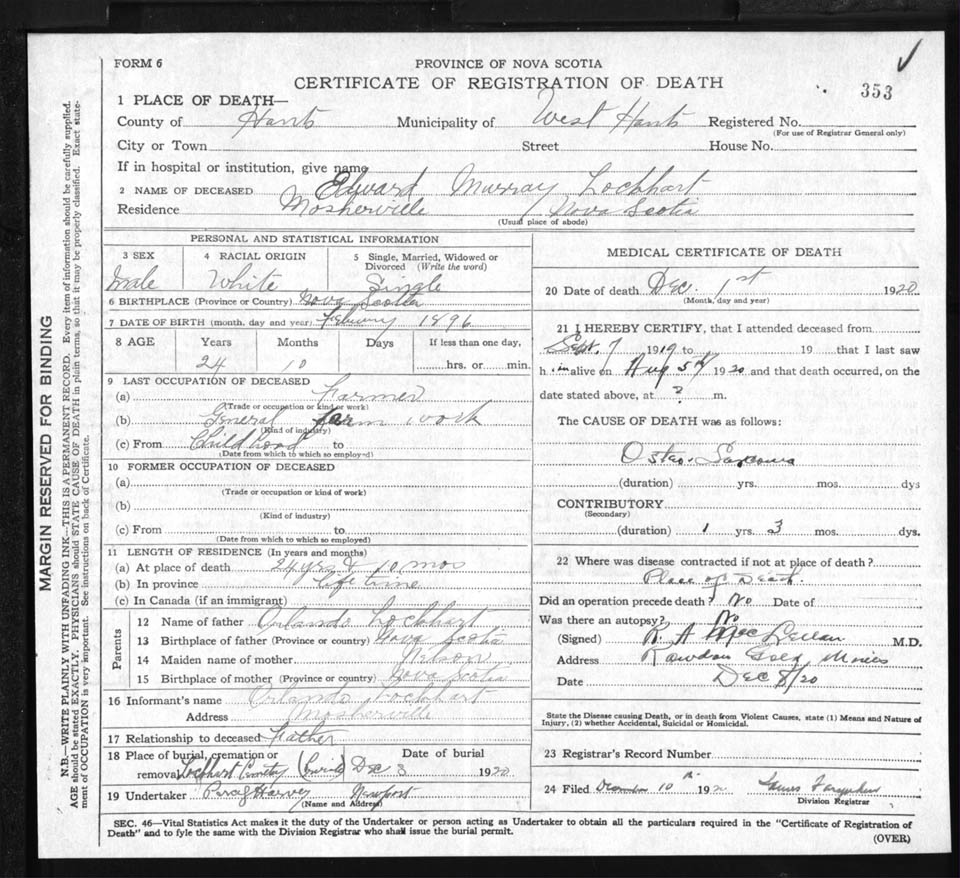 FORM 6
PROVINCE OF NOVA SCOTIA
CERTIFICATE OF REGISTRATION OF DEATH
353
1 PLACE OF DEATH—
County of Hants Municipality of West Hants Registered No.
(For use of Registrar General only)
City or Town Street House No.
If in hospital or institution, give name
2 NAME OF DECEASED Edward Murray Lockhart
Residence Mosherville Nova Scotia
(Usual place of abode)
PERSONAL AND STATISTICAL INFORMATION
3 SEX 4 RACIAL ORIGIN 5 Single, Married, Widowed or Divorced (Write the word)
Male White Single
6 BIRTHPLACE (Province or Country) Nova Scotia
7 DATE OF BIRTH (month, day and year) February 1896
8 AGE Years Months Days If less than one day,
24 10 hrs. or min.
9 LAST OCCUPATION OF DECEASED
(a) Farmer
(Trade or occupation or kind of work)
(b) General farm work
(Kind of industry)
(c) From Childhood to
(Date from which to which so employed)
10 FORMER OCCUPATION OF DECEASED
(a)
(Trade or occupation or kind of work)
(b)
(Kind of industry)
(c) From to
(Date from which to which so employed)
11 LENGTH OF RESIDENCE (In years and months)
(a) At place of death 24 yrs & 10 mos
(b) In province life time
(c) In Canada (if an immigrant)
Parents
12 Name of father Orlando Lockhart
13 Birthplace of father (Province or country) Nova Scotia
14 Maiden name of mother Nelson
15 Birthplace of mother (Province or country) Nova Scotia
16 Informant's name Orlando Lockhart
Address Mosherville
17 Relationship to deceased Father
18 Place of burial, cremation or removal Lockhart Cemetry (burial) Date of burial Dec 3 1920
19 Undertaker Percy Harvey Newport
(Name and Address)
MEDICAL CERTIFICATE OF DEATH
20 Date of death Dec. 1st 1920
(Month, day and year)
21 I HEREBY CERTIFY, that I attended deceased from
Sept. 7 1919 to 19 that I last saw
h im alive on Aug 5th 1920 and that death occurred, on the
date stated above, at ? m.
The CAUSE OF DEATH was as follows:
Osteo-Sarcoma
(duration) yrs. mos. dys
CONTRIBUTORY
(Secondary)
(duration) 1 yrs. 3 mos. dys.
22 Where was disease contracted if not at place of death?
Place of Death.
Did an operation precede death? No Date of
Was there an autopsy? No
(Signed) R. A MacLellan M.D.
Address Rawdon Gold Mines
Date Dec 8/20
State the Disease causing Death, or in death from Violent Causes, state (1) Means and Nature of Injury, (2) whether Accidental, Suicidal or Homicidal.
23 Registrar's Record Number
24 Filed December 10 192 James
Division Registrar
SEC. 46—Vital Statistics Act makes it the duty of the Undertaker or person acting as Undertaker to obtain all the particulars required in the "Certificate of Registration of
Death" and to fyle the same with the Division Registrar who shall issue the burial permit.
(OVER)
MARGIN RESERVED FOR BINDING
N.B.—WRITE PLAINLY WITH UNFADING INK—THIS IS A PERMANENT RECORD. Every item of information should be carefully supplied.
AGE should be stated EXACTLY. PHYSICIANS should STATE CAUSE OF DEATH in plain terms, so that it may be properly classified. Exact statement of OCCUPATION is very important. See instructions on back of Certificate.